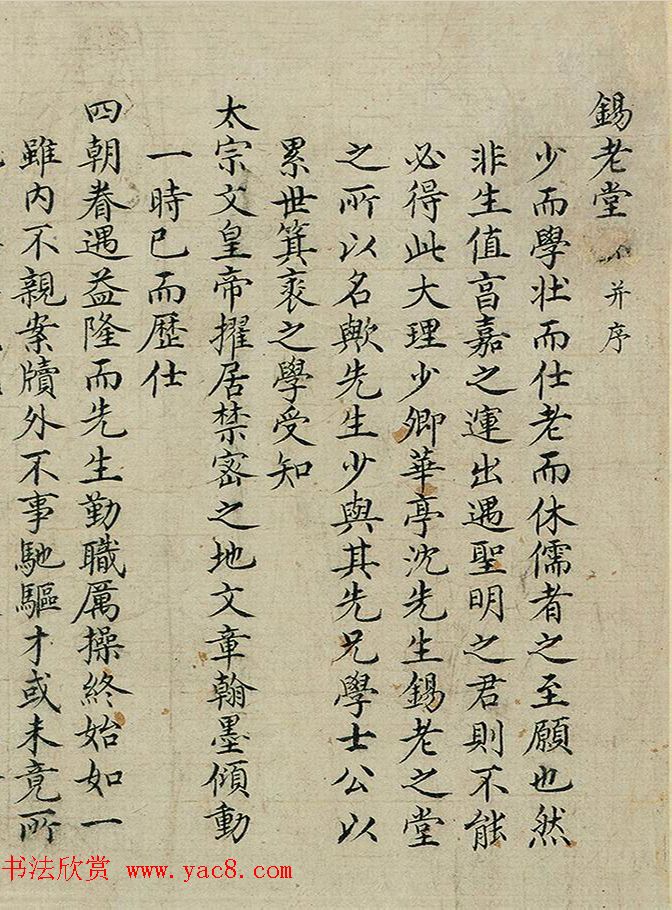 錫老堂 并序
少而學壯而仕老而休儒者之至願也然
非生值亯嘉之運出遇聖明之君則不能
必得此大理少卿華亭沈先生錫老之堂
之所以名歟先生少與其先兄學士公以
累世箕裘之學受知
太宗文皇帝擢居禁密之地文章翰墨傾動
一時已而歷仕
四朝眷遇益隆而先生勤職厲操終始如一
雖内不親案牘外不事馳驅才或未竟所
书法欣赏 www.yac8.com